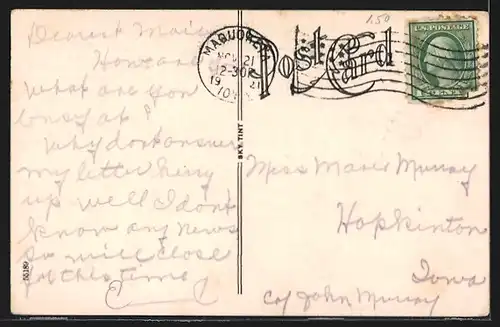 Dearest Marie
How are
what are you
busy at?
Why dont answer
my letter
up well I dont
know any news
so will close
for this time
1.50
MAQUOKETA
NOV 21
2-30P
19 21
IOWA
Post Card
U.S. POSTAGE
CENTS
SKY TINT
55189
Miss Marie Murray
Hopkinton
Iowa
c/o John Murray